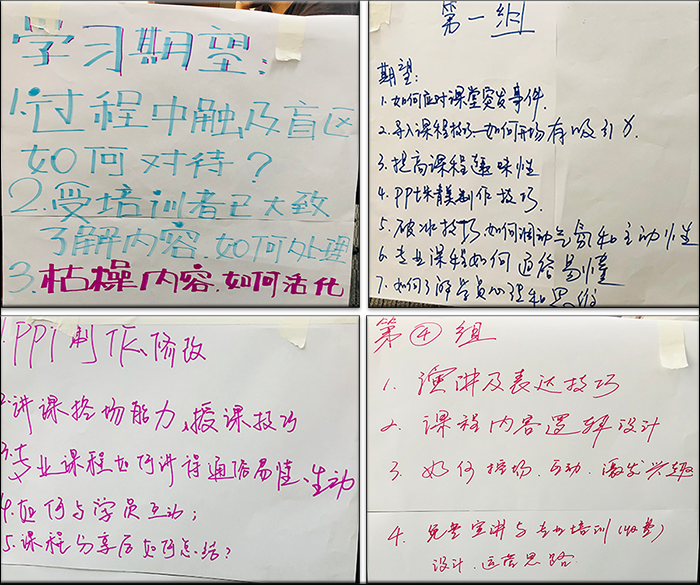 学习期望:
1.过程中触及盲区
如何对待?
2.受培训者已大致
了解内容 如何处理
3.枯燥内容.如何活化
第一组
期望:
1.如何应对课堂突发事件.
2.导入课程技巧—如何开场有吸引力
3.提高课程趣味性
4.PPT精美制作技巧.
5.破冰技巧 如何调动气氛和主动性
6.专业课程如何通俗易懂
7.如何了解学员心理和思维
1.PPT制作、修改
2.讲课控场能力、授课技巧
3.专业课程如何讲得通俗易懂、生动
4.如何与学员互动;
5.课程分享后如何总结?
第④组
1. 演讲及表达技巧
2. 课程内容逻辑设计
3. 如何控场.互动.激发兴趣
4. 免费宣讲与专业培训(收费)
设计.运营思路.